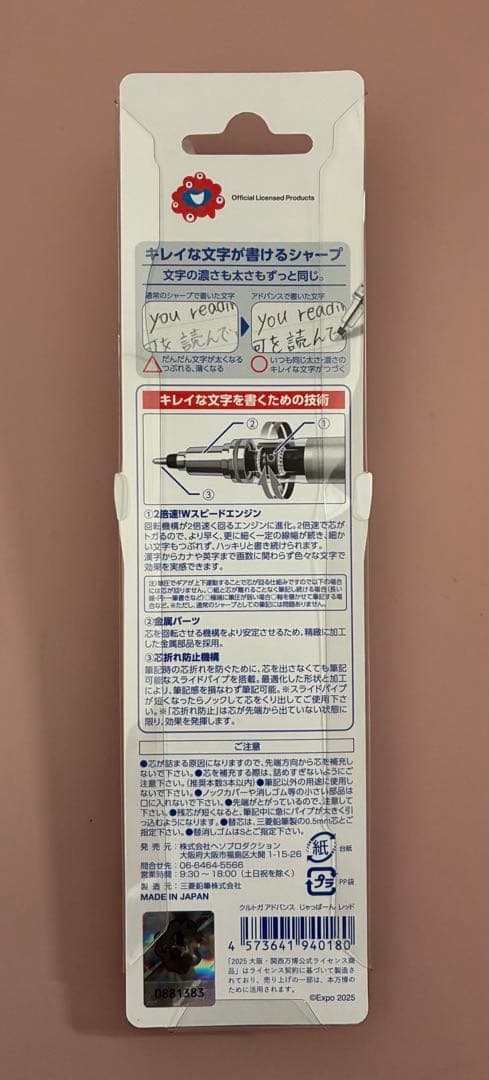 Official Licensed Products
キレイな文字が書けるシャープ
文字の濃さも太さもずっと同じ。
通常のシャープで書いた文字
アドバンスで書いた文字
you readin
可を読んで
you readin
可を読んで
△だんだん文字が太くなる
つぶれる、薄くなる
○いつも同じ太さ・濃さの
キレイな文字がつづく
キレイな文字を書くための技術
②
①
③
①2倍速!Wスピードエンジン
回転機構が2倍速く回るエンジンに進化。2倍速で芯が
トガるので、より早く、更に細く一定の線幅が続き、細か
い文字もつぶれず、ハッキリと書き続けられます。
漢字からカナや英字まで画数に関わらず色々な文字で
効果を実感できます。
注)筆圧でギアが上下運動することで芯が回る仕組みですので以下の場合
には芯が回りません。○紙と芯が離れることなく筆記し続ける場合(長い
線・円・一筆書きなど)○極端に筆圧が弱い場合○軸を寝かせて筆記する場
合など。※ただし、通常のシャープとしての筆記には問題ありません。
②金属パーツ
芯を回転させる機構をより安定させるため、精緻に加工
した金属部品を採用。
③芯折れ防止機構
筆記時の芯折れを防ぐために、芯を出さなくても筆記
可能なスライドパイプを搭載。最適化した形状と加工
により、筆記感を損なわず筆記可能。※スライドパイプ
が短くなったらノックして芯をくり出してご使用下さ
い。※「芯折れ防止」は芯が先端から出ていない状態に
限り、効果を発揮します。
ご注意
●芯が詰まる原因になりますので、先端方向から芯を補充し
ないで下さい。●芯を補充する際は、詰めすぎないようにご
注意下さい。(推奨本数3本以内)●筆記以外の用途に使用し
ないで下さい。●ノックカバーや消しゴム等の小さい部品は
口に入れないで下さい。●先端がとがっているので、注意して
下さい。●残芯が短くなると、筆記中に急にパイプが大きく引
っ込むようになります。●替芯は、三菱鉛筆製の0.5mm芯とご
指定下さい。●替消しゴムはSとご指定下さい。
発売元:株式会社ヘソプロダクション
大阪府大阪市福島区大開 1-15-26
問合せ先:06-6464-5566
営業時間:9:30~18:00(土日祝を除く)
製造元:三菱鉛筆株式会社
MADE IN JAPAN
紙 台紙
プラ PP袋
クルトガ アドバンス じゃっぱーん レッド
4 573641 940180
0881383
「2025 大阪・関西万博公式ライセンス商
品」はライセンス契約に基づいて製造さ
れており、売り上げの一部は、本万博の
ために活用されます。
©Expo 2025